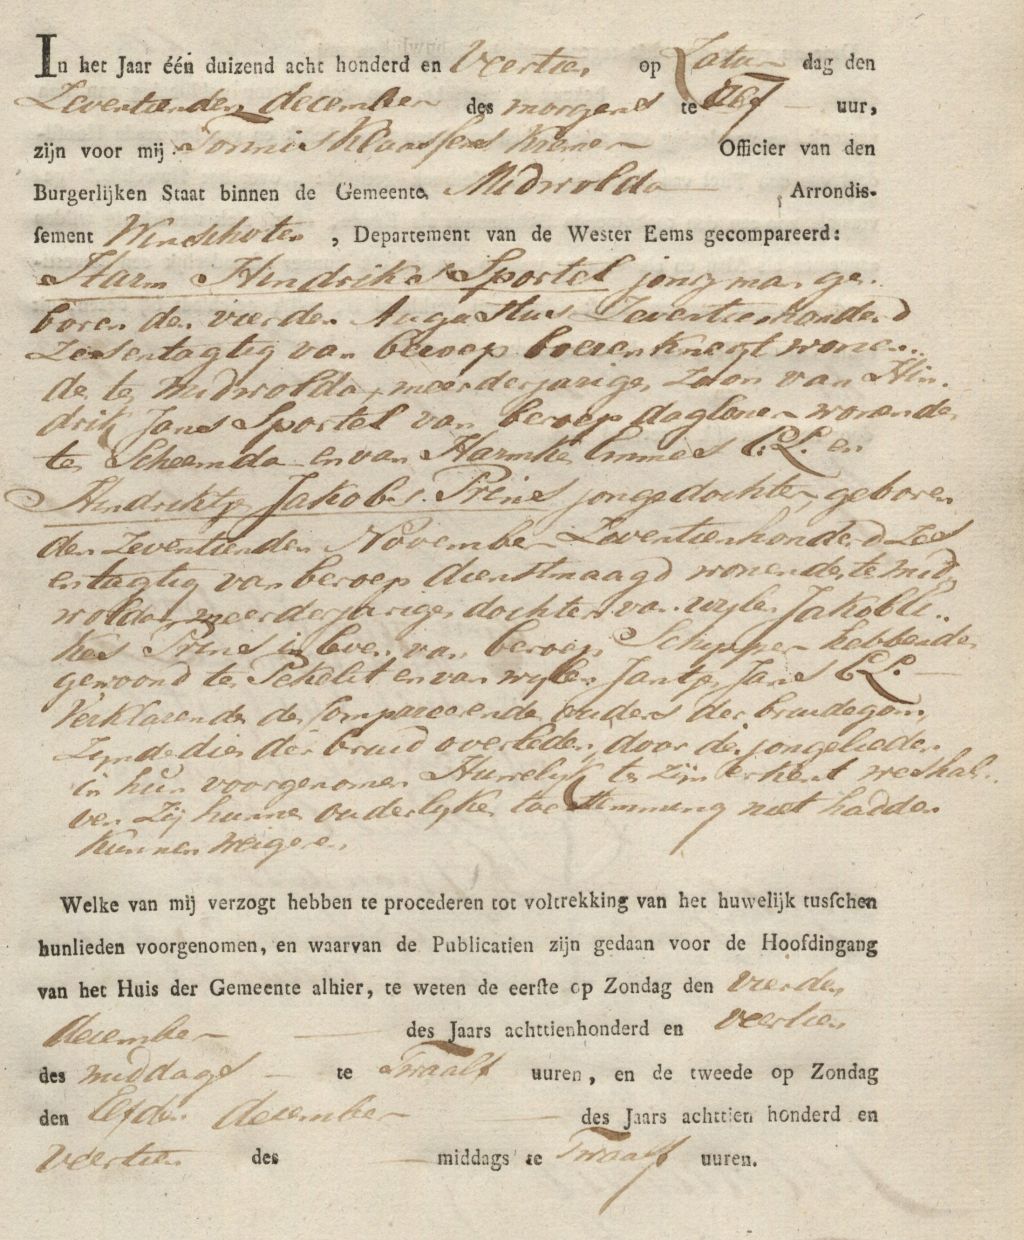 In het Jaar één duizend acht honderd en Veertien op Zatur dag den
Zeventienden december des morgens te Elf uur,
zijn voor mij Tonnis Klaassens Kremer Officier van den
Burgerlijken Staat binnen de Gemeente Midwolda , Arrondis-
sement Winschoten , Departement van de Wester Eems gecompareerd:
Harm Hindriks Sportel jongman ge-
boren den vierden Augustus Zeventienhonderd
Zesentagtig van beroep boerenknegt wonen-
de te Midwolda, meerderjarige Zoon van Hin-
drik Jans Sportel van beroep dagloner wonende
te Scheemda en van Harmke Emmes E.L. en
Hindriktje Jakobs Prins jongedochter, geboren
den Zeventienden November Zeventienhonderd Zes
entagtig van beroep dienstmaagd wonende te Mid
wolda, meerderjarige dochter van wylen Jakob
kes Prins in leven van beroep Schipper hebbende
gewoond te Pekel en van wylen Jantje Jans E.L.
Verklarende de Comparerende ouders der bruidegom,
Zynde die der bruid overleden, door de jongelieden
in hun voorgenomen Huwelyk te zijn erkent weshal-
ven Zij hunne ouderlyke toestemming niet hadden
kunnen weigeren
Welke van mij verzogt hebben te procederen tot voltrekking van het huwelijk tusschen
hunlieden voorgenomen, en waarvan de Publicatien zijn gedaan voor de Hoofdingang
van het Huis der Gemeente alhier, te weten de eerste op Zondag den vierden
december des Jaars achttienhonderd en veertien
des middags te Twaalf uuren, en de tweede op Zondag
den Elfden december des Jaars achttien honderd en
Veertien des middags te Twaalf uuren.